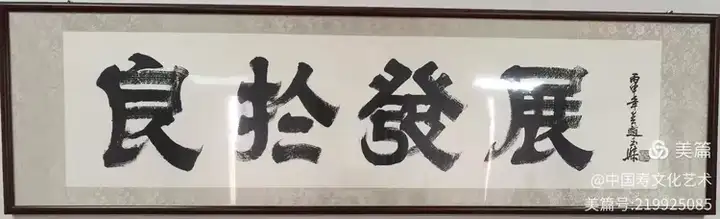 良扵發展
丙申年
美篇
@中国寿文化艺术
美篇号:219925085